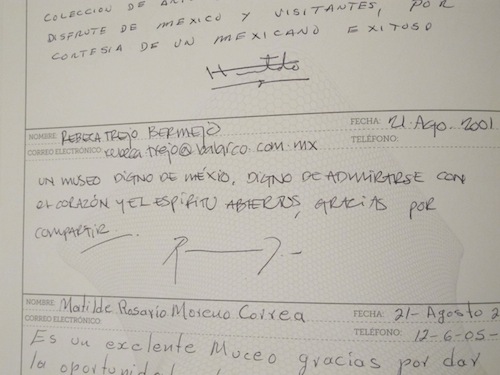 COLECCION DE
DISFRUTE DE MEXICO Y VISITANTES, POR
CORTESIA DE UN MEXICANO EXITOSO
NOMBRE: REBECA TREJO BERMEJO FECHA: 21. Ago. 2001
CORREO ELECTRÓNICO: rebeca.trejo@balarco.com.mx TELÉFONO:
UN MUSEO DIGNO DE MÉXIO, DIGNO DE ADMIRARSE CON
el CORAZÓN Y EL ESPÍRITU ABIERTOS, GRACIAS POR
COMPARTIR.
NOMBRE: Matilde Rosario Moreno Correa FECHA: 21- Agosto 2
CORREO ELECTRÓNICO: TELÉFONO: 12-6-05-
Es un exclente Museo gracias por dar
la oportunidad